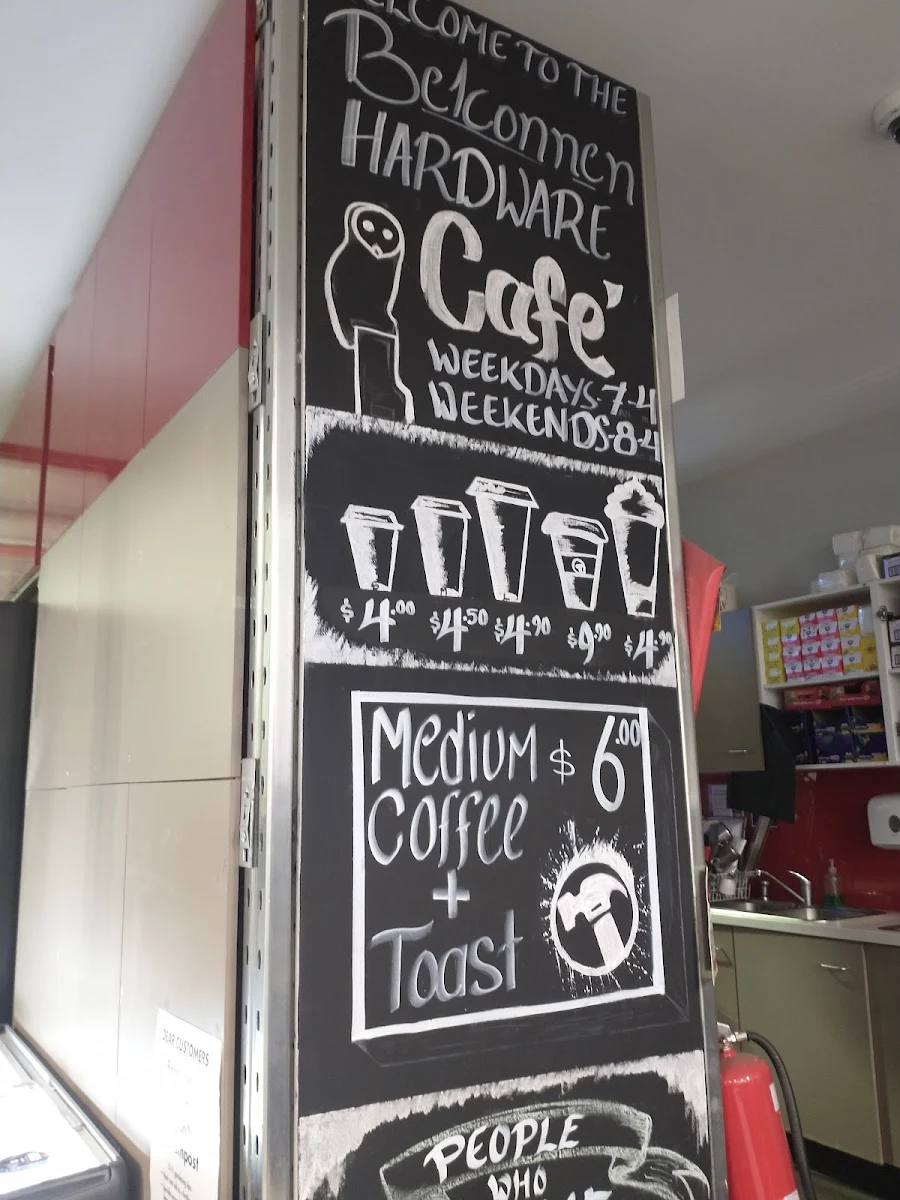 WELCOME TO THE
Belconnen
HARDWARE
Café
WEEKDAYS-7-4
WEEKENDS-8-4
$4.00 $4.50 $4.90 $9.90 $4.90
Medium $6.00
Coffee
+
Toast
PEOPLE
WHO
DEAR CUSTOMERS